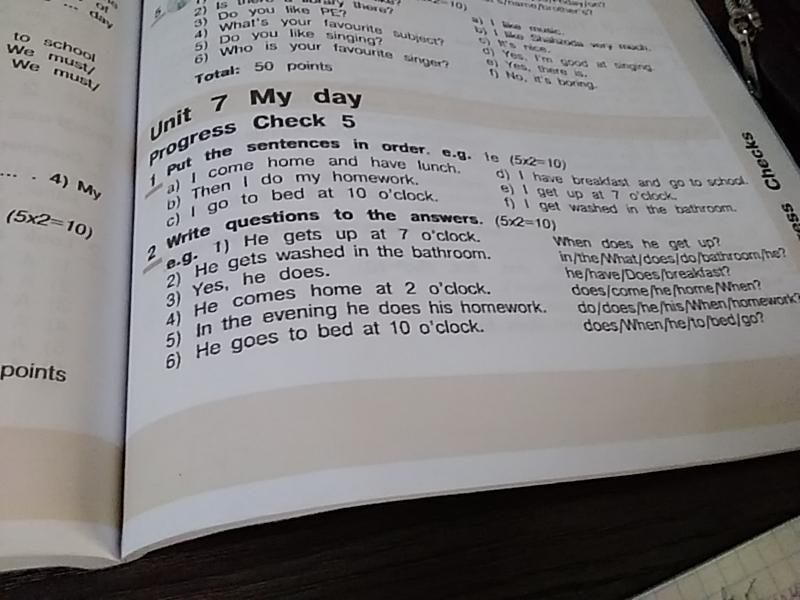 of
... day
to school
We must/
We must/
... . 4) My
(5x2=10)
points
2) Is there a library there?
3) Do you like PE?
4) What's your favourite subject?
5) Do you like singing?
6) Who is your favourite singer?
a) I like music.
b) I like Shahzoda very much.
c) It's nice.
d) Yes, I'm good at singing.
e) Yes, there is.
f) No, it's boring.
Total: 50 points
Unit 7 My day
Progress Check 5
1 Put the sentences in order. e.g. 1e (5x2=10)
a) I come home and have lunch.
b) Then I do my homework.
c) I go to bed at 10 o'clock.
d) I have breakfast and go to school.
e) I get up at 7 o'clock.
f) I get washed in the bathroom.
2 Write questions to the answers. (5x2=10)
e.g. 1) He gets up at 7 o'clock. When does he get up?
2) He gets washed in the bathroom. in/the/What/does/do/bathroom/he?
3) Yes, he does. he/have/Does/breakfast?
4) He comes home at 2 o'clock. does/come/he/home/When?
5) In the evening he does his homework. do/does/he/his/When/homework?
6) He goes to bed at 10 o'clock. does/When/he/to/bed/go?
Checks